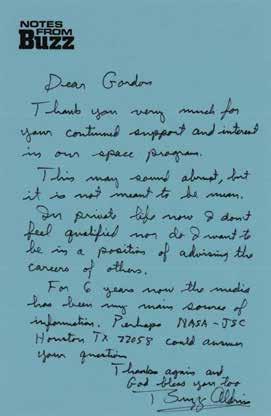 NOTES
FROM
Buzz
Dear Gordon
Thank you very much for
your continued support and interest
in our space program.
This may sound abrupt, but
it is not meant to be mean.
In private life now I don't
feel qualified nor do I want to
be in a position of advising the
careers of others.
For 6 years now the media
has been my main source of
information. Perhaps NASA-JSC
Houston TX 77058 could answer
your question
Thanks again and
God bless you too
Buzz Aldrin